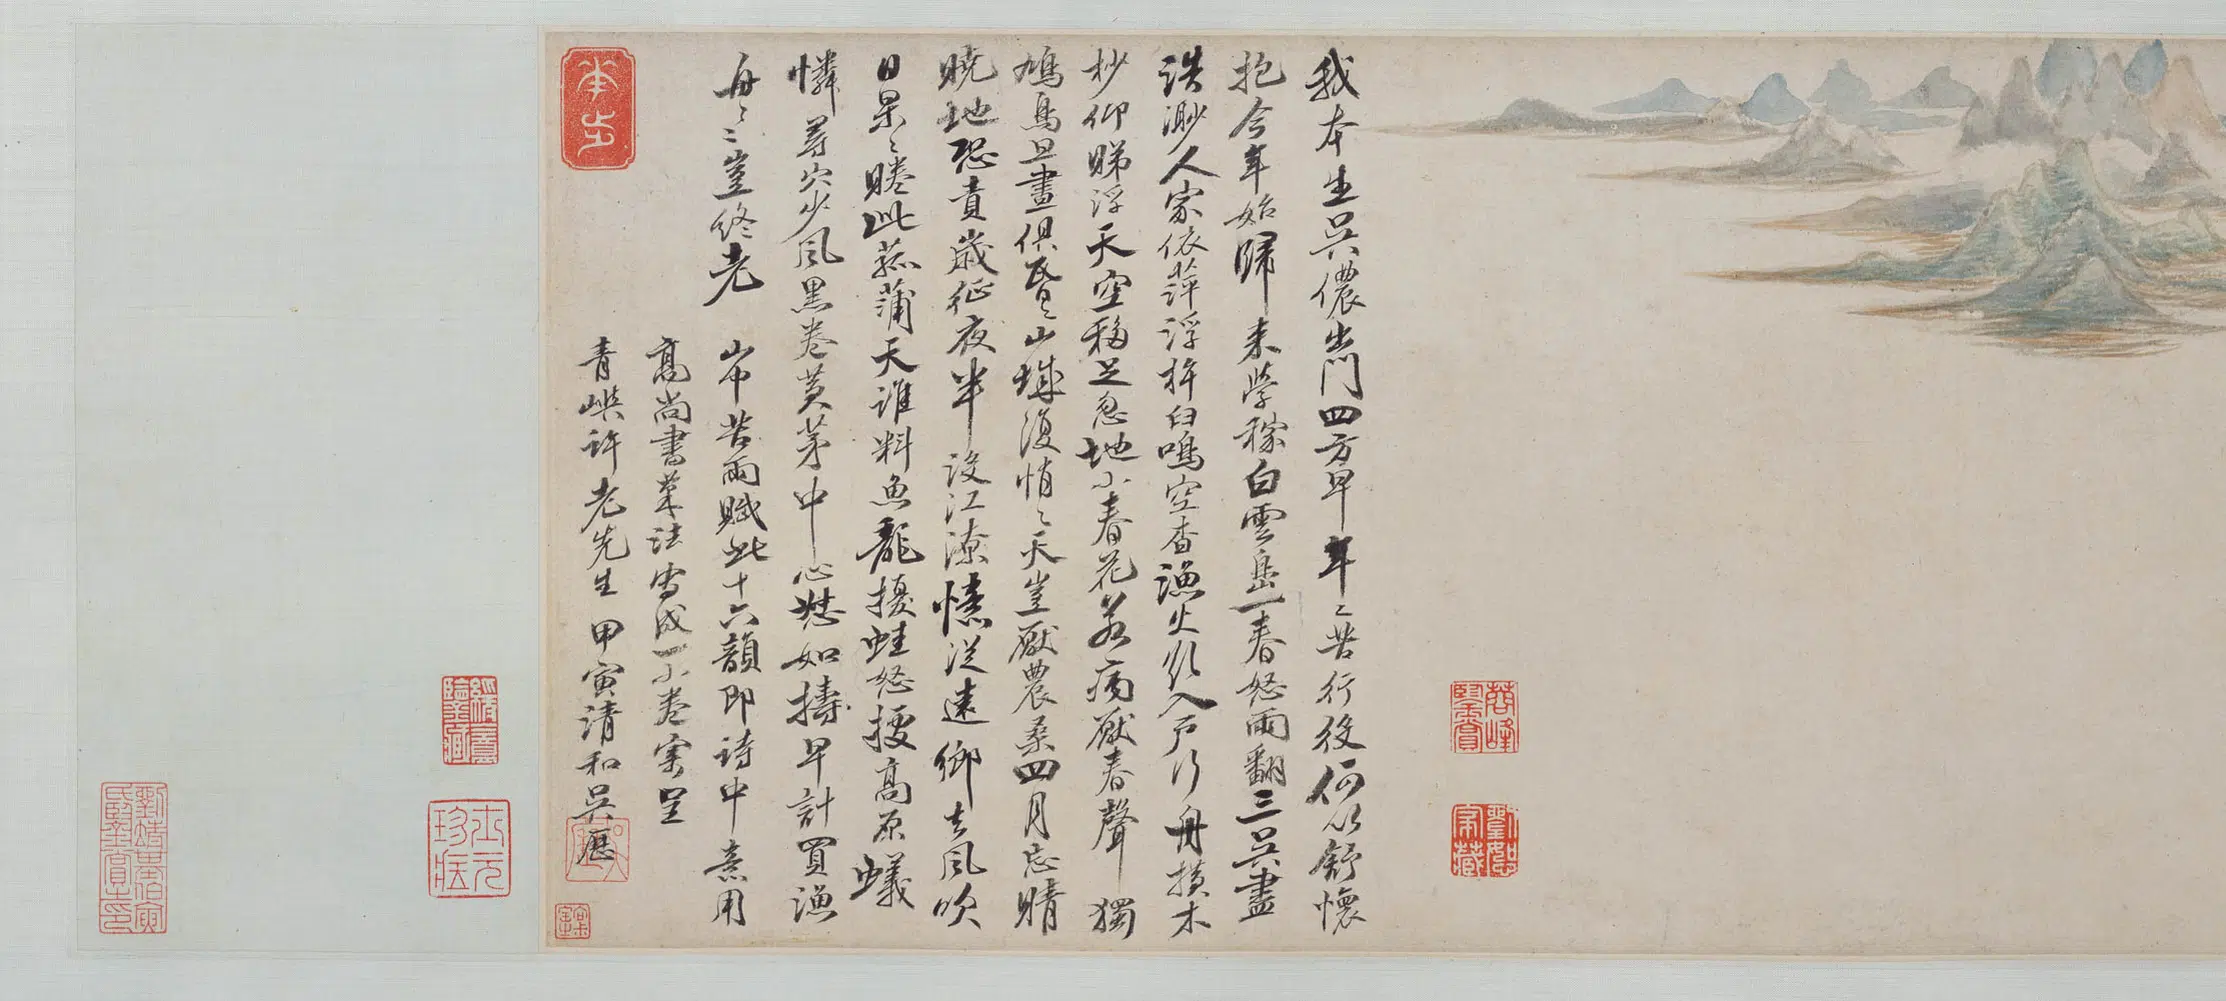 我本生吳儂出門四方早年〻苦行役何以舒懷
抱今年始歸來學稼白雲島一春怒雨翻三吳盡
浩渺人家依萍浮杵臼鳴空杳漁火欲入戶行舟摸木
杪仰睇浮天空移足忽地小春花若病厭春聲獨
鳩鳥旦晝俱昏〻山城復悄〻天豈厭農桑四月忘晴
曉地恐責歲征夜半設江潦從遠鄉去風吹
日杲〻睠此菰蒲天誰料魚龍擾蛙怒擾高原蟻
憐尋穴少風黑卷黃茅中心愁如擣早計買漁
舟〻〻豈終老 山中苦雨賦此十六韻即詩中意用
高尚書筆法寫成一小卷寄呈
青嶼許老先生 甲寅清和吳歷
蓉峰鑒賞
劉恕家藏